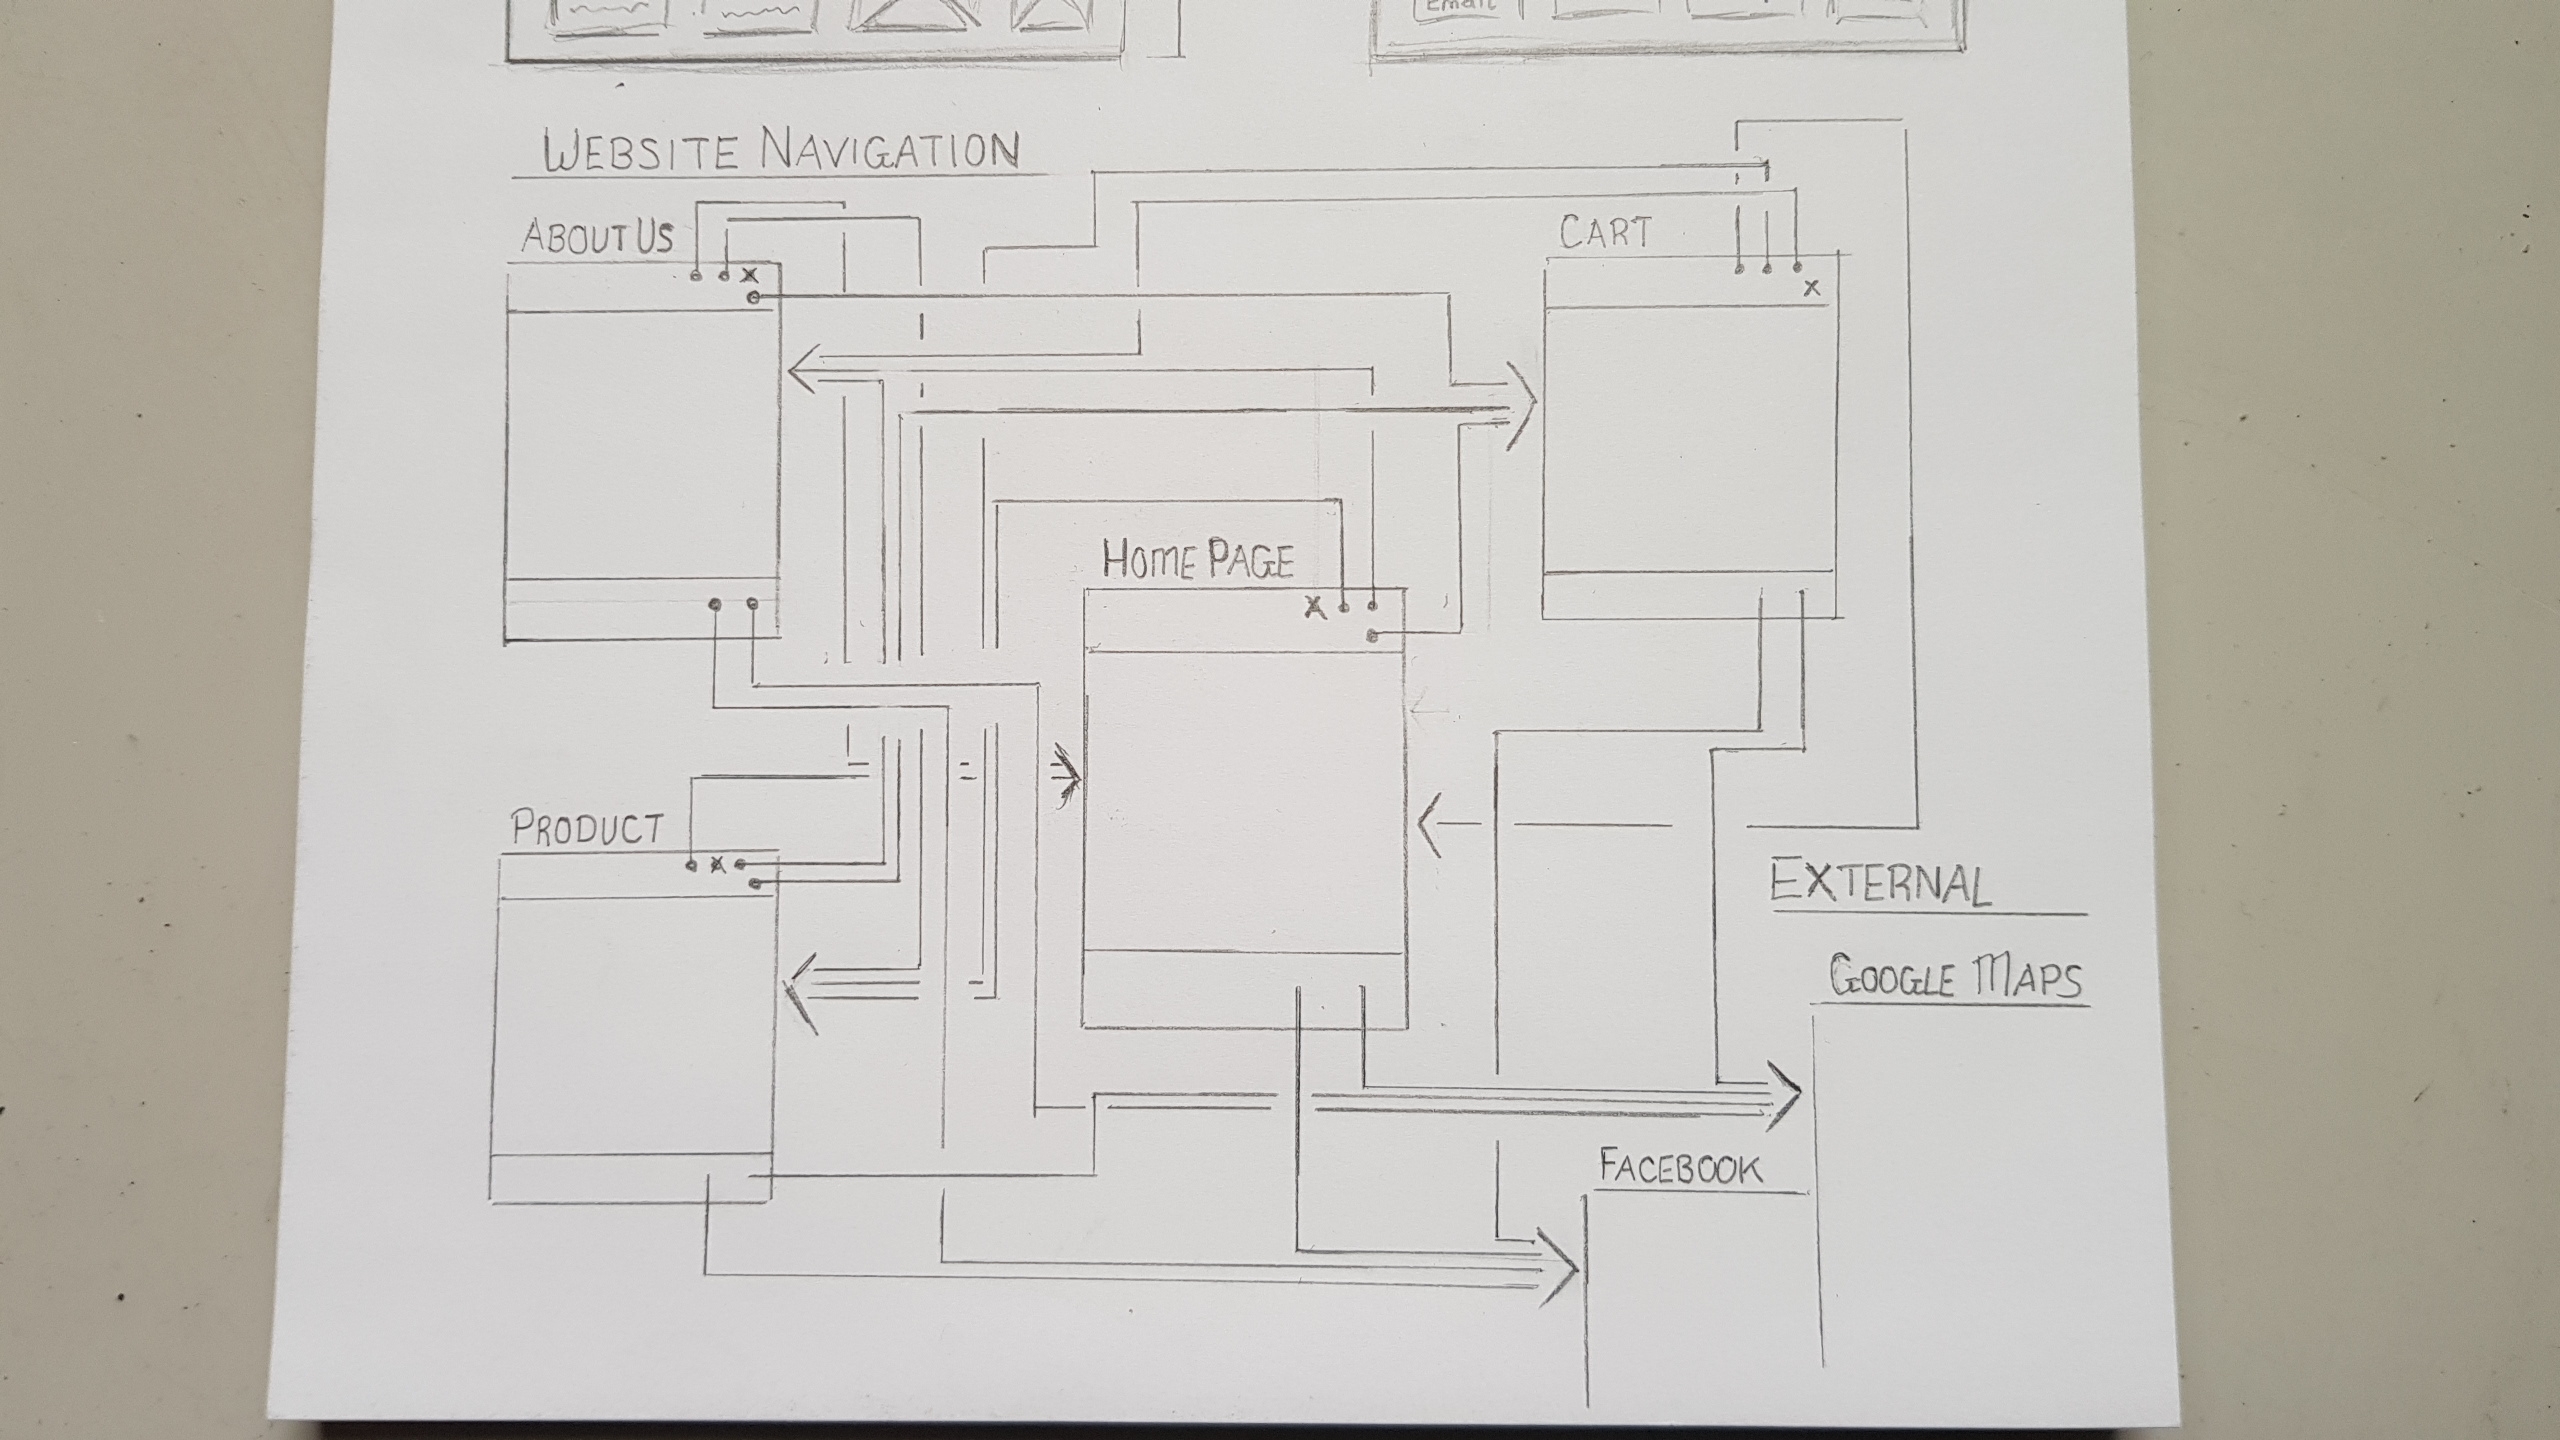 Email
WEBSITE NAVIGATION
ABOUT US
CART
HOME PAGE
PRODUCT
EXTERNAL
GOOGLE MAPS
FACEBOOK